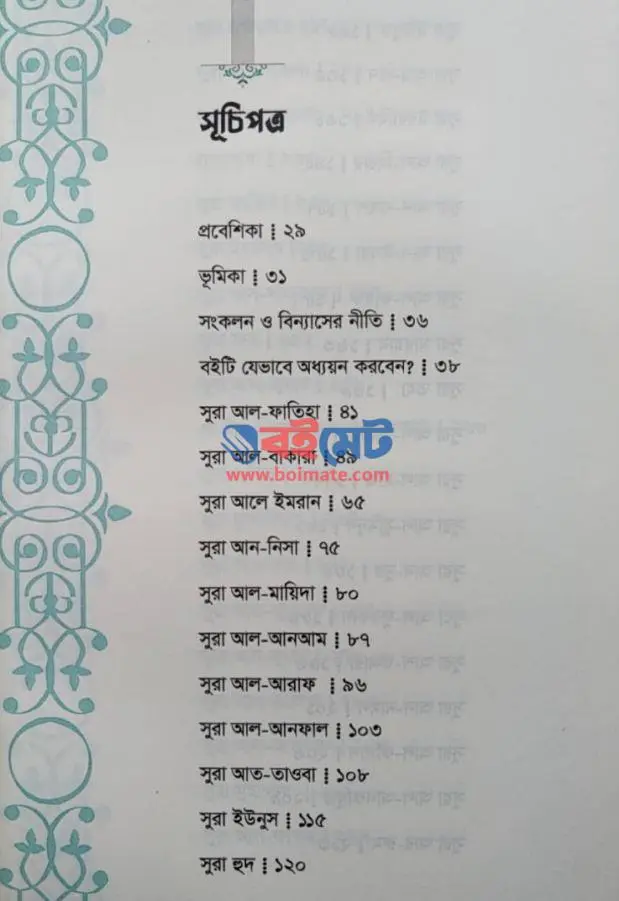 সূচিপত্র
প্রবেশিকা ⁞ ২৯
ভূমিকা ⁞ ৩১
সংকলন ও বিন্যাসের নীতি ⁞ ৩৬
বইটি যেভাবে অধ্যয়ন করবেন? ⁞ ৩৮
সুরা আল-ফাতিহা ⁞ ৪১
বইমেট
সুরা আল-বাকারা ⁞ ৪৯
www.boimate.com
সুরা আলে ইমরান ⁞ ৬৫
সুরা আন-নিসা ⁞ ৭৫
সুরা আল-মায়িদা ⁞ ৮০
সুরা আল-আনআম ⁞ ৮৭
সুরা আল-আরাফ ⁞ ৯৬
সুরা আল-আনফাল ⁞ ১০৩
সুরা আত-তাওবা ⁞ ১০৮
সুরা ইউনুস ⁞ ১১৫
সুরা হুদ ⁞ ১২০